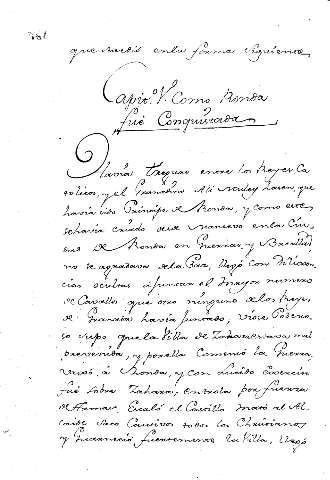 que nacio en la forma siguiente
Capit.º V. Como Ronda
fue Conquistada
treguas entre los Reyes Ca
tolicos, y el Granadino Ali muley hacen, que
havia sido Principe de Ronda, y como este
se havia criado de en la Ciu
dad de Ronda en Guerras, y Batallas
no se agradava de la Paz,
ocultas a juntar el mayor numero
de Cavallos que otro ninguno de los Reyes
de Granada havia juntado, viose Podero
so supo que la Villa de Zahara estava mal
prevenida, y por ella Comenzó la Guerra,
a Ronda, y con Lucido Exercito
fue sobre Zahara, entrola por fuerza
de Armas, Escaló el Castillo mató al Al
caide Saco Cautivos todos los Christianos
y Guarneció fuertemente la Villa,